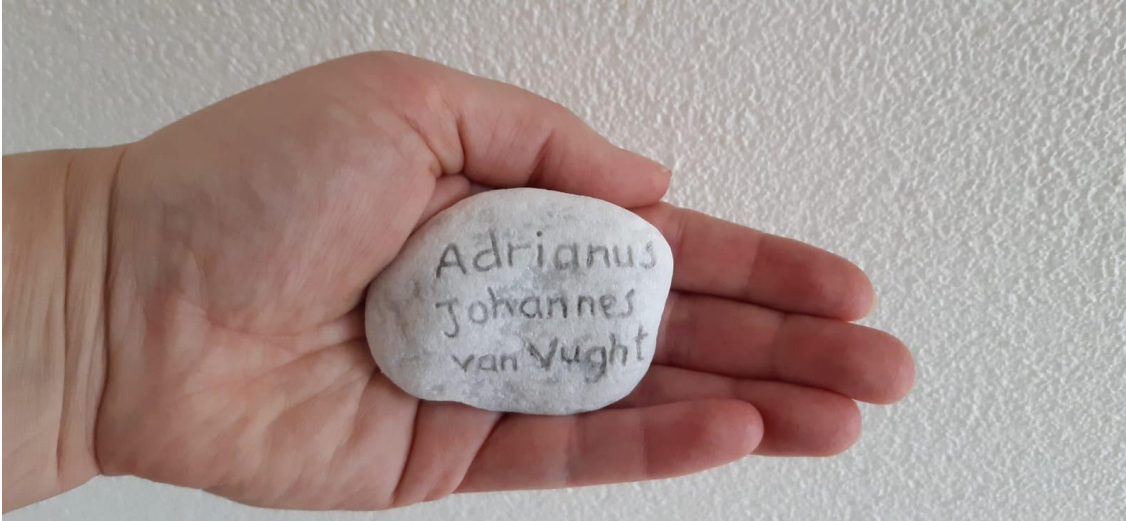 Adrianus
Johannes
van Vught